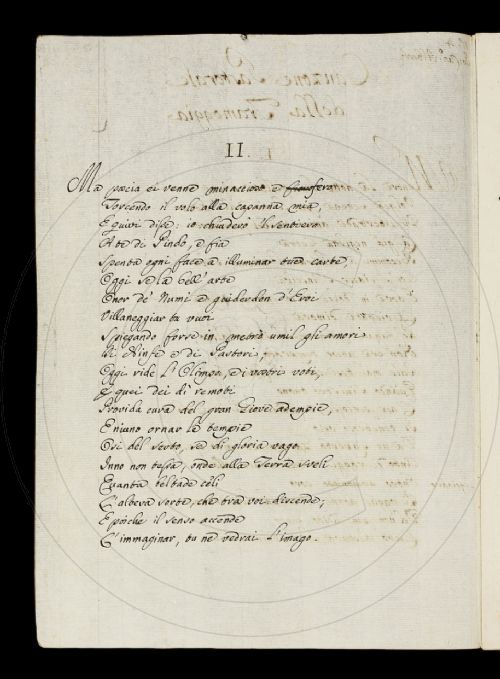 II.
Ma poscia ei venne minaccioso e fero
Torcendo il volo alla capanna mia,
E quivi disse: io chiuderò 'l sentiero
A te di Pindo, e fia
Spenta ogni face a illuminar tue carte:
Oggi se la bell' arte
Onor de' Numi e guiderdon d'Eroi
Villaneggiar tu vuoi
Spiegando forse in metro umil gli amori
Di Ninfe e di Pastori;
Oggi ride l'Olimpo, e i vostri voti,
E quei dei dì remoti
Provida cura del gran Giove adempie,
Invano ornar le tempie
Osi del serto, se di gloria vago
Inno non tessa, onde alla Terra sveli
Quanta beltade celi
L'altera sorte, che tra voi discende;
E poichè il senso accende
L'immaginar, tu ne vedrai l'imago.